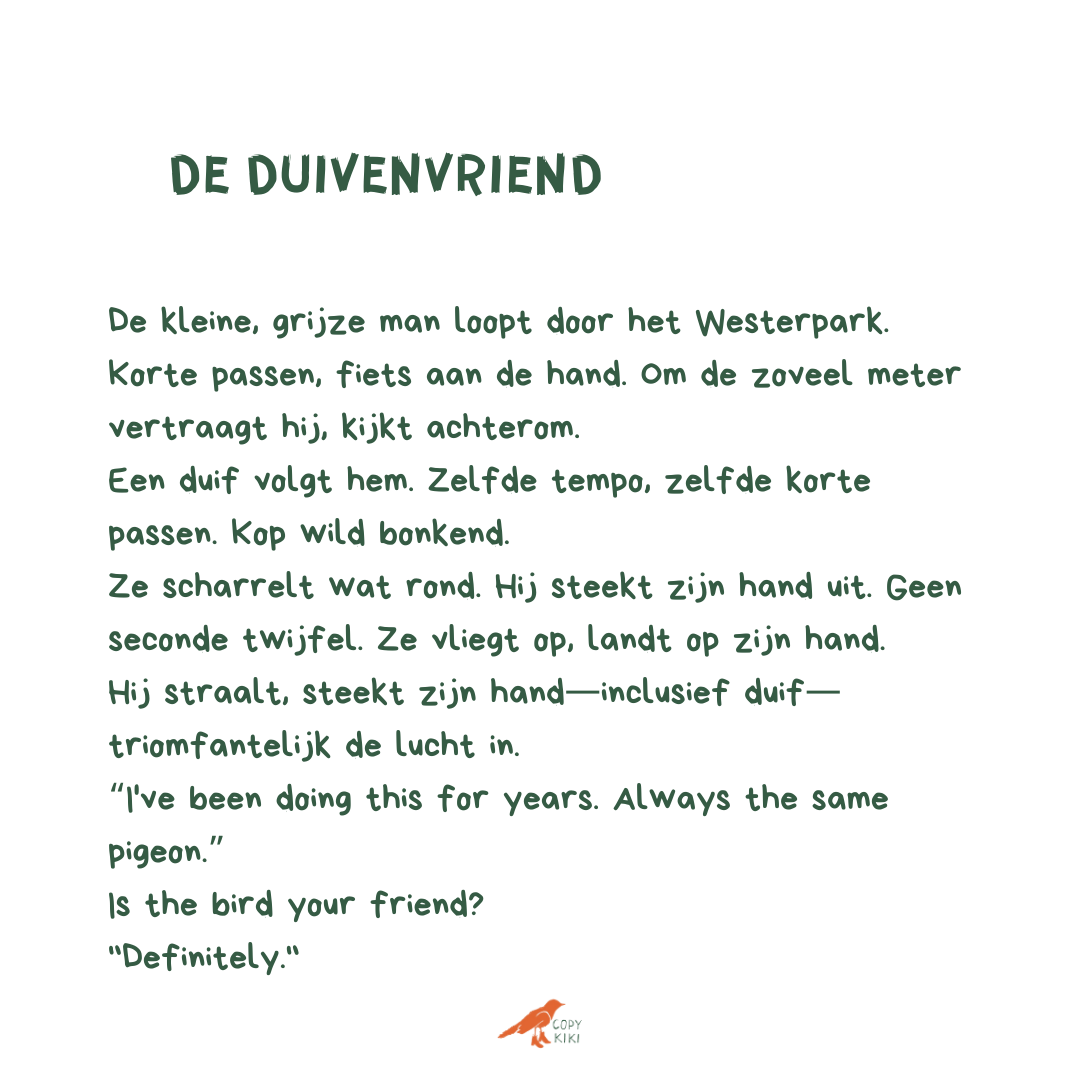 DE DUIVENVRIEND
De kleine, grijze man loopt door het Westerpark.
Korte passen, fiets aan de hand. Om de zoveel meter
vertraagt hij, kijkt achterom.
Een duif volgt hem. Zelfde tempo, zelfde korte
passen. Kop wild bonkend.
Ze scharrelt wat rond. Hij steekt zijn hand uit. Geen
seconde twijfel. Ze vliegt op, landt op zijn hand.
Hij straalt, steekt zijn hand—inclusief duif—
triomfantelijk de lucht in.
“I've been doing this for years. Always the same
pigeon.”
Is the bird your friend?
"Definitely."
COPY
KIKI